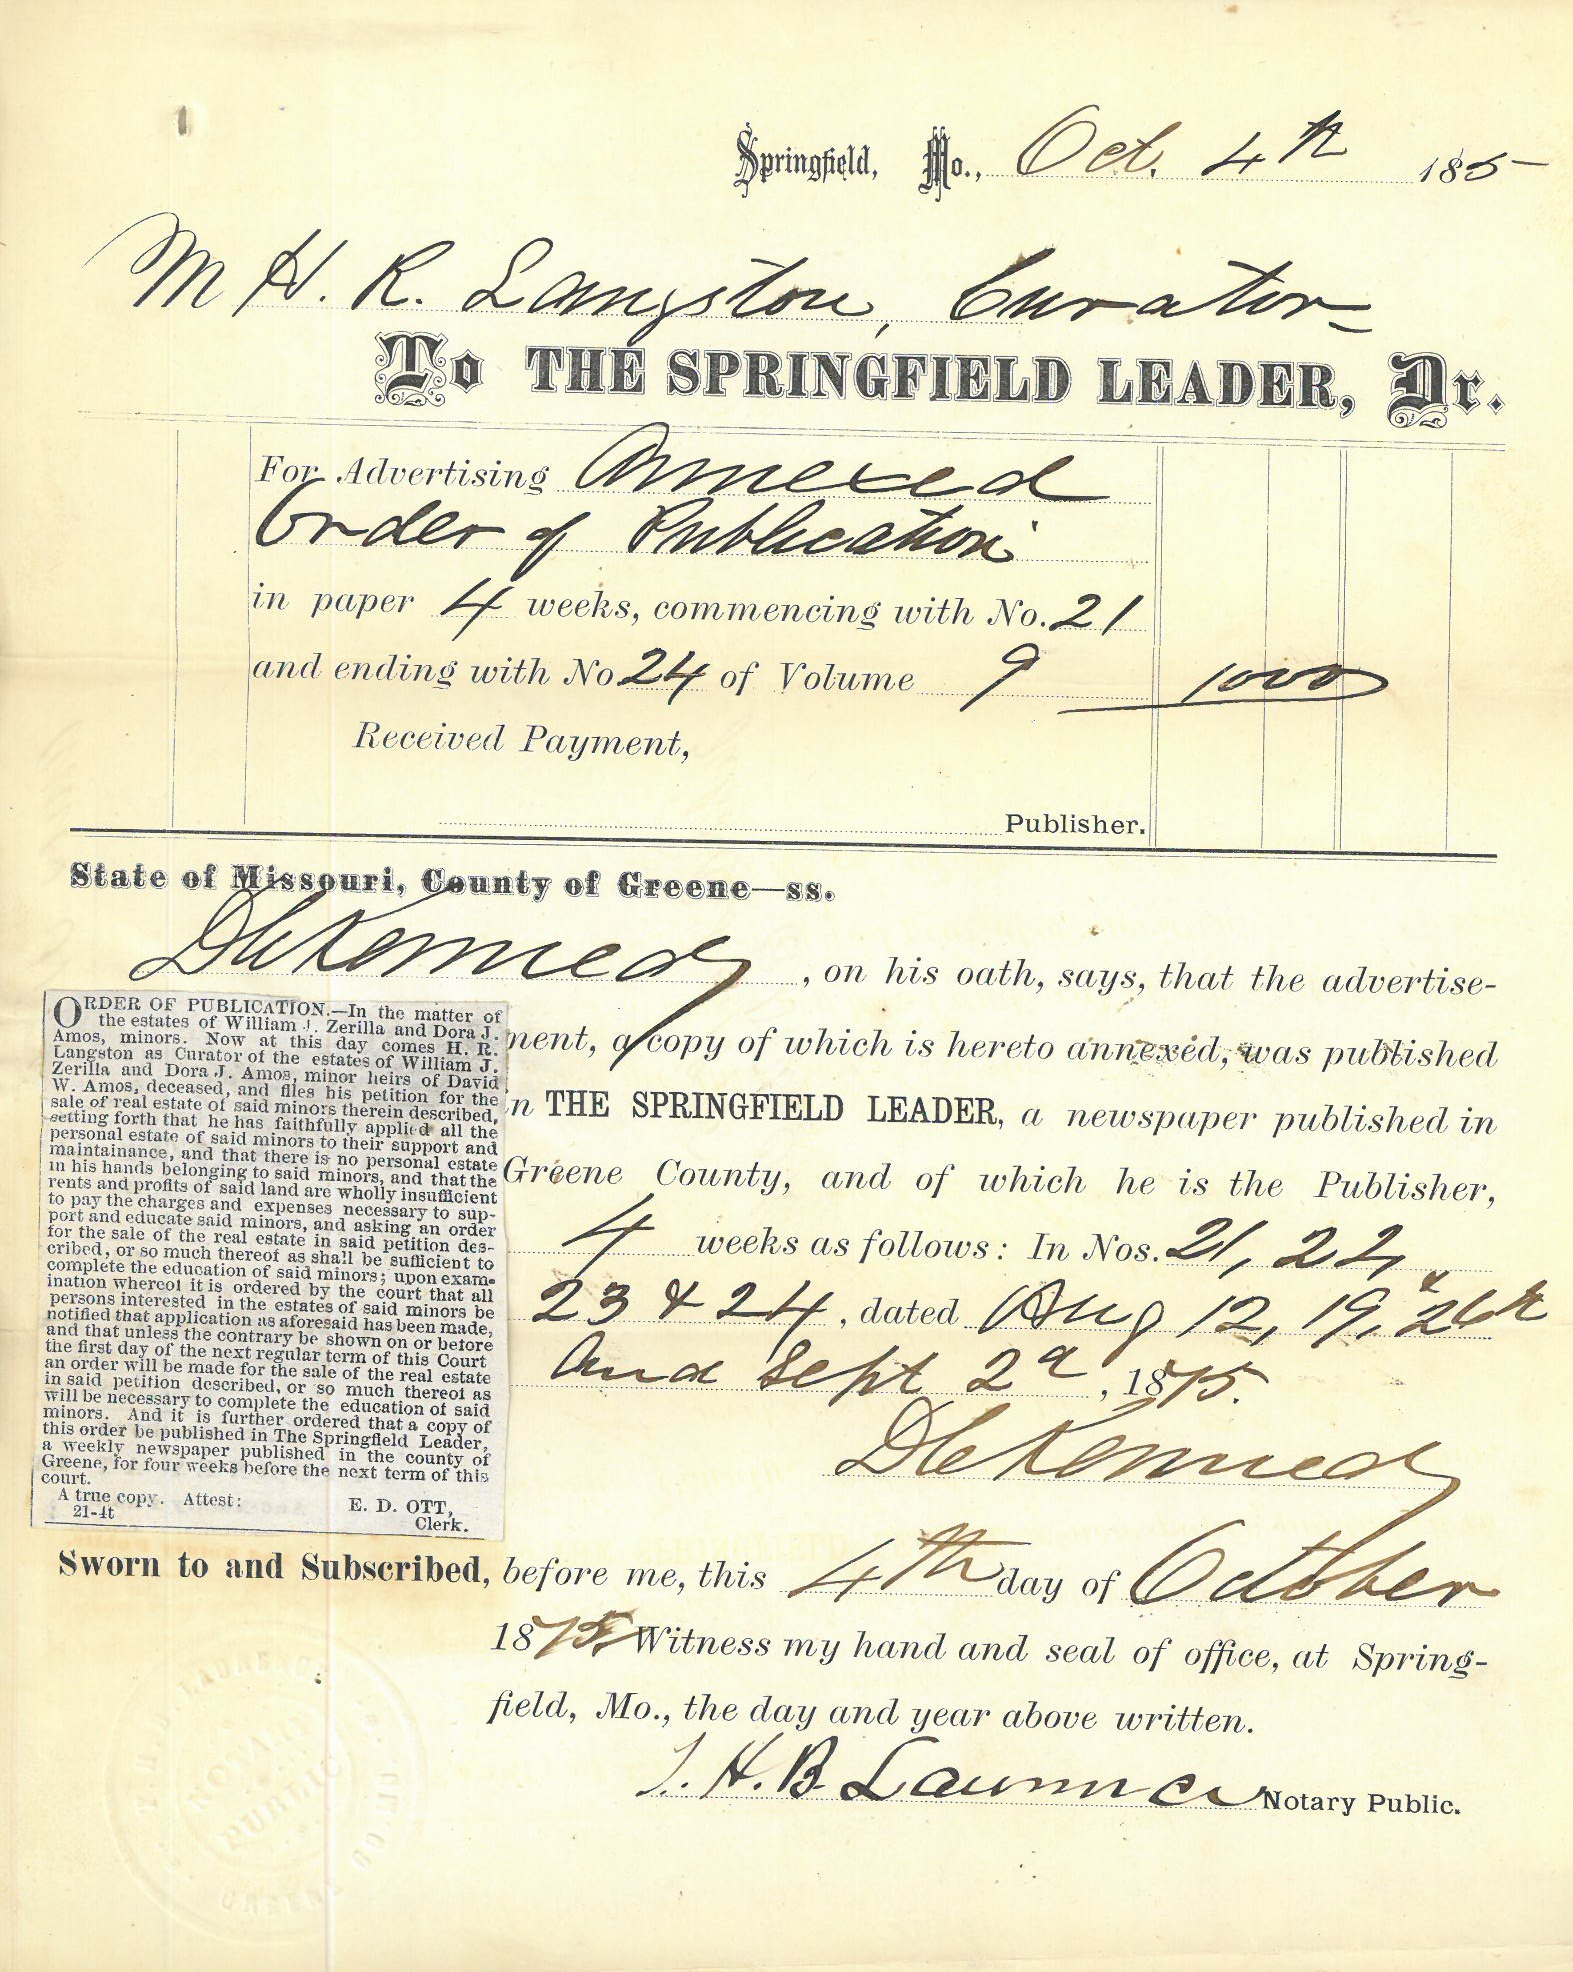 Springfield, Mo., Oct. 4th 185
M H. R. Langston, Curator
To THE SPRINGFIELD LEADER, Dr.
For Advertising Annexed
Order of Publication
in paper 4 weeks, commencing with No. 21
and ending with No 24 of Volume 9 1000
Received Payment,
Publisher.
State of Missouri, County of Greene—ss.
D C Kennedy, on his oath, says, that the advertise-
ment, a copy of which is hereto annexed, was published
in THE SPRINGFIELD LEADER, a newspaper published in
Greene County, and of which he is the Publisher,
4 weeks as follows: In Nos. 21, 22,
23 & 24, dated Aug 12, 19, & 26th
and Sept 2d, 1875.
D C Kennedy
ORDER OF PUBLICATION.—In the matter of
the estates of William J. Zerilla and Dora J.
Amos, minors. Now at this day comes H. R.
Langston as Curator of the estates of William J.
Zerilla and Dora J. Amos, minor heirs of David
W. Amos, deceased, and files his petition for the
sale of real estate of said minors therein described,
setting forth that he has faithfully applied all the
personal estate of said minors to their support and
maintainance, and that there is no personal estate
in his hands belonging to said minors, and that the
rents and profits of said land are wholly insufficient
to pay the charges and expenses necessary to sup-
port and educate said minors, and asking an order
for the sale of the real estate in said petition des-
cribed, or so much thereof as shall be sufficient to
complete the education of said minors; upon exam-
ination whereof it is ordered by the court that all
persons interested in the estates of said minors be
notified that application as aforesaid has been made,
and that unless the contrary be shown on or before
the first day of the next regular term of this Court
an order will be made for the sale of the real estate
in said petition described, or so much thereof as
will be necessary to complete the education of said
minors. And it is further ordered that a copy of
this order be published in The Springfield Leader,
a weekly newspaper published in the county of
Greene, for four weeks before the next term of this
court.
A true copy. Attest: E. D. OTT,
21-4t Clerk.
Sworn to and Subscribed, before me, this 4th day of October
1875. Witness my hand and seal of office, at Spring-
field, Mo., the day and year above written.
J. H. B. Lawrence Notary Public.
NOTARY
PUBLIC